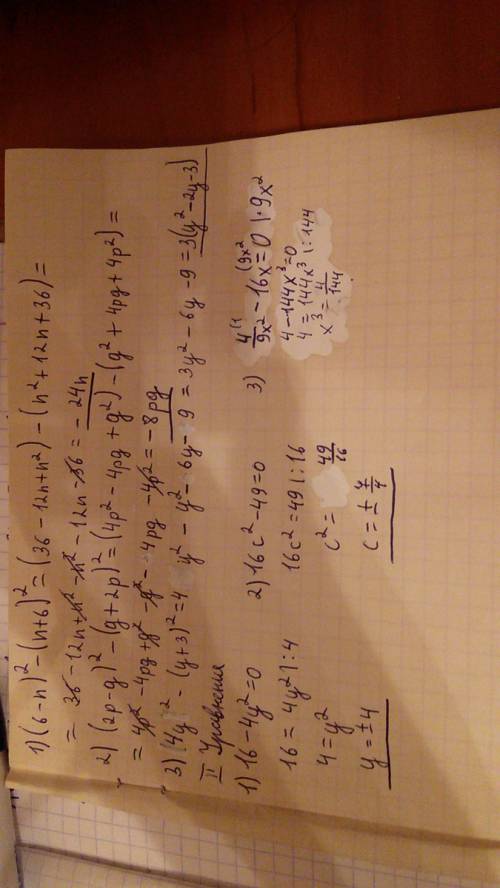 1) (6-n)² - (n+6)² = (36 - 12n + n²) - (n² + 12n + 36) =
= 36 - 12n + n² - n² - 12n - 36 = - 24n
2) (2p-g)² - (g+2p)² = (4p² - 4pg + g²) - (g² + 4pg + 4p²) =
= 4p² - 4pg + g² - g² - 4pg - 4p² = - 8pg
3) (4y)² - (y+3)² = 4 y² - y² - 6y - 9 = 3y² - 6y - 9 = 3(y² - 2y - 3)
II Уравнения
1) 16 - 4y² = 0
16 = 4y² |: 4
4 = y²
y = ± 4
2) 16c² - 49 = 0
16c² = 49 |: 16
c² = 49/16
c = ± 7/4
3) 4(1/9x² - 16x(9x² = 0 | · 9x²
4 - 144x³ = 0
4 = 144x³ |: 144
x³ = 4/144